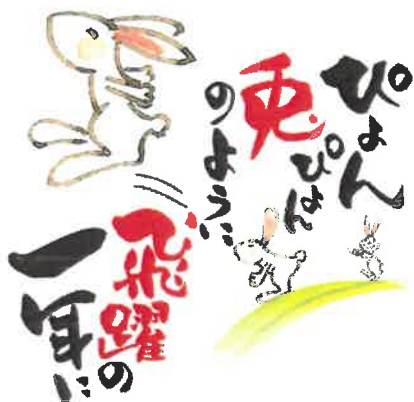 ぴょん
ぴょん
兎
のように
飛躍の
一年に